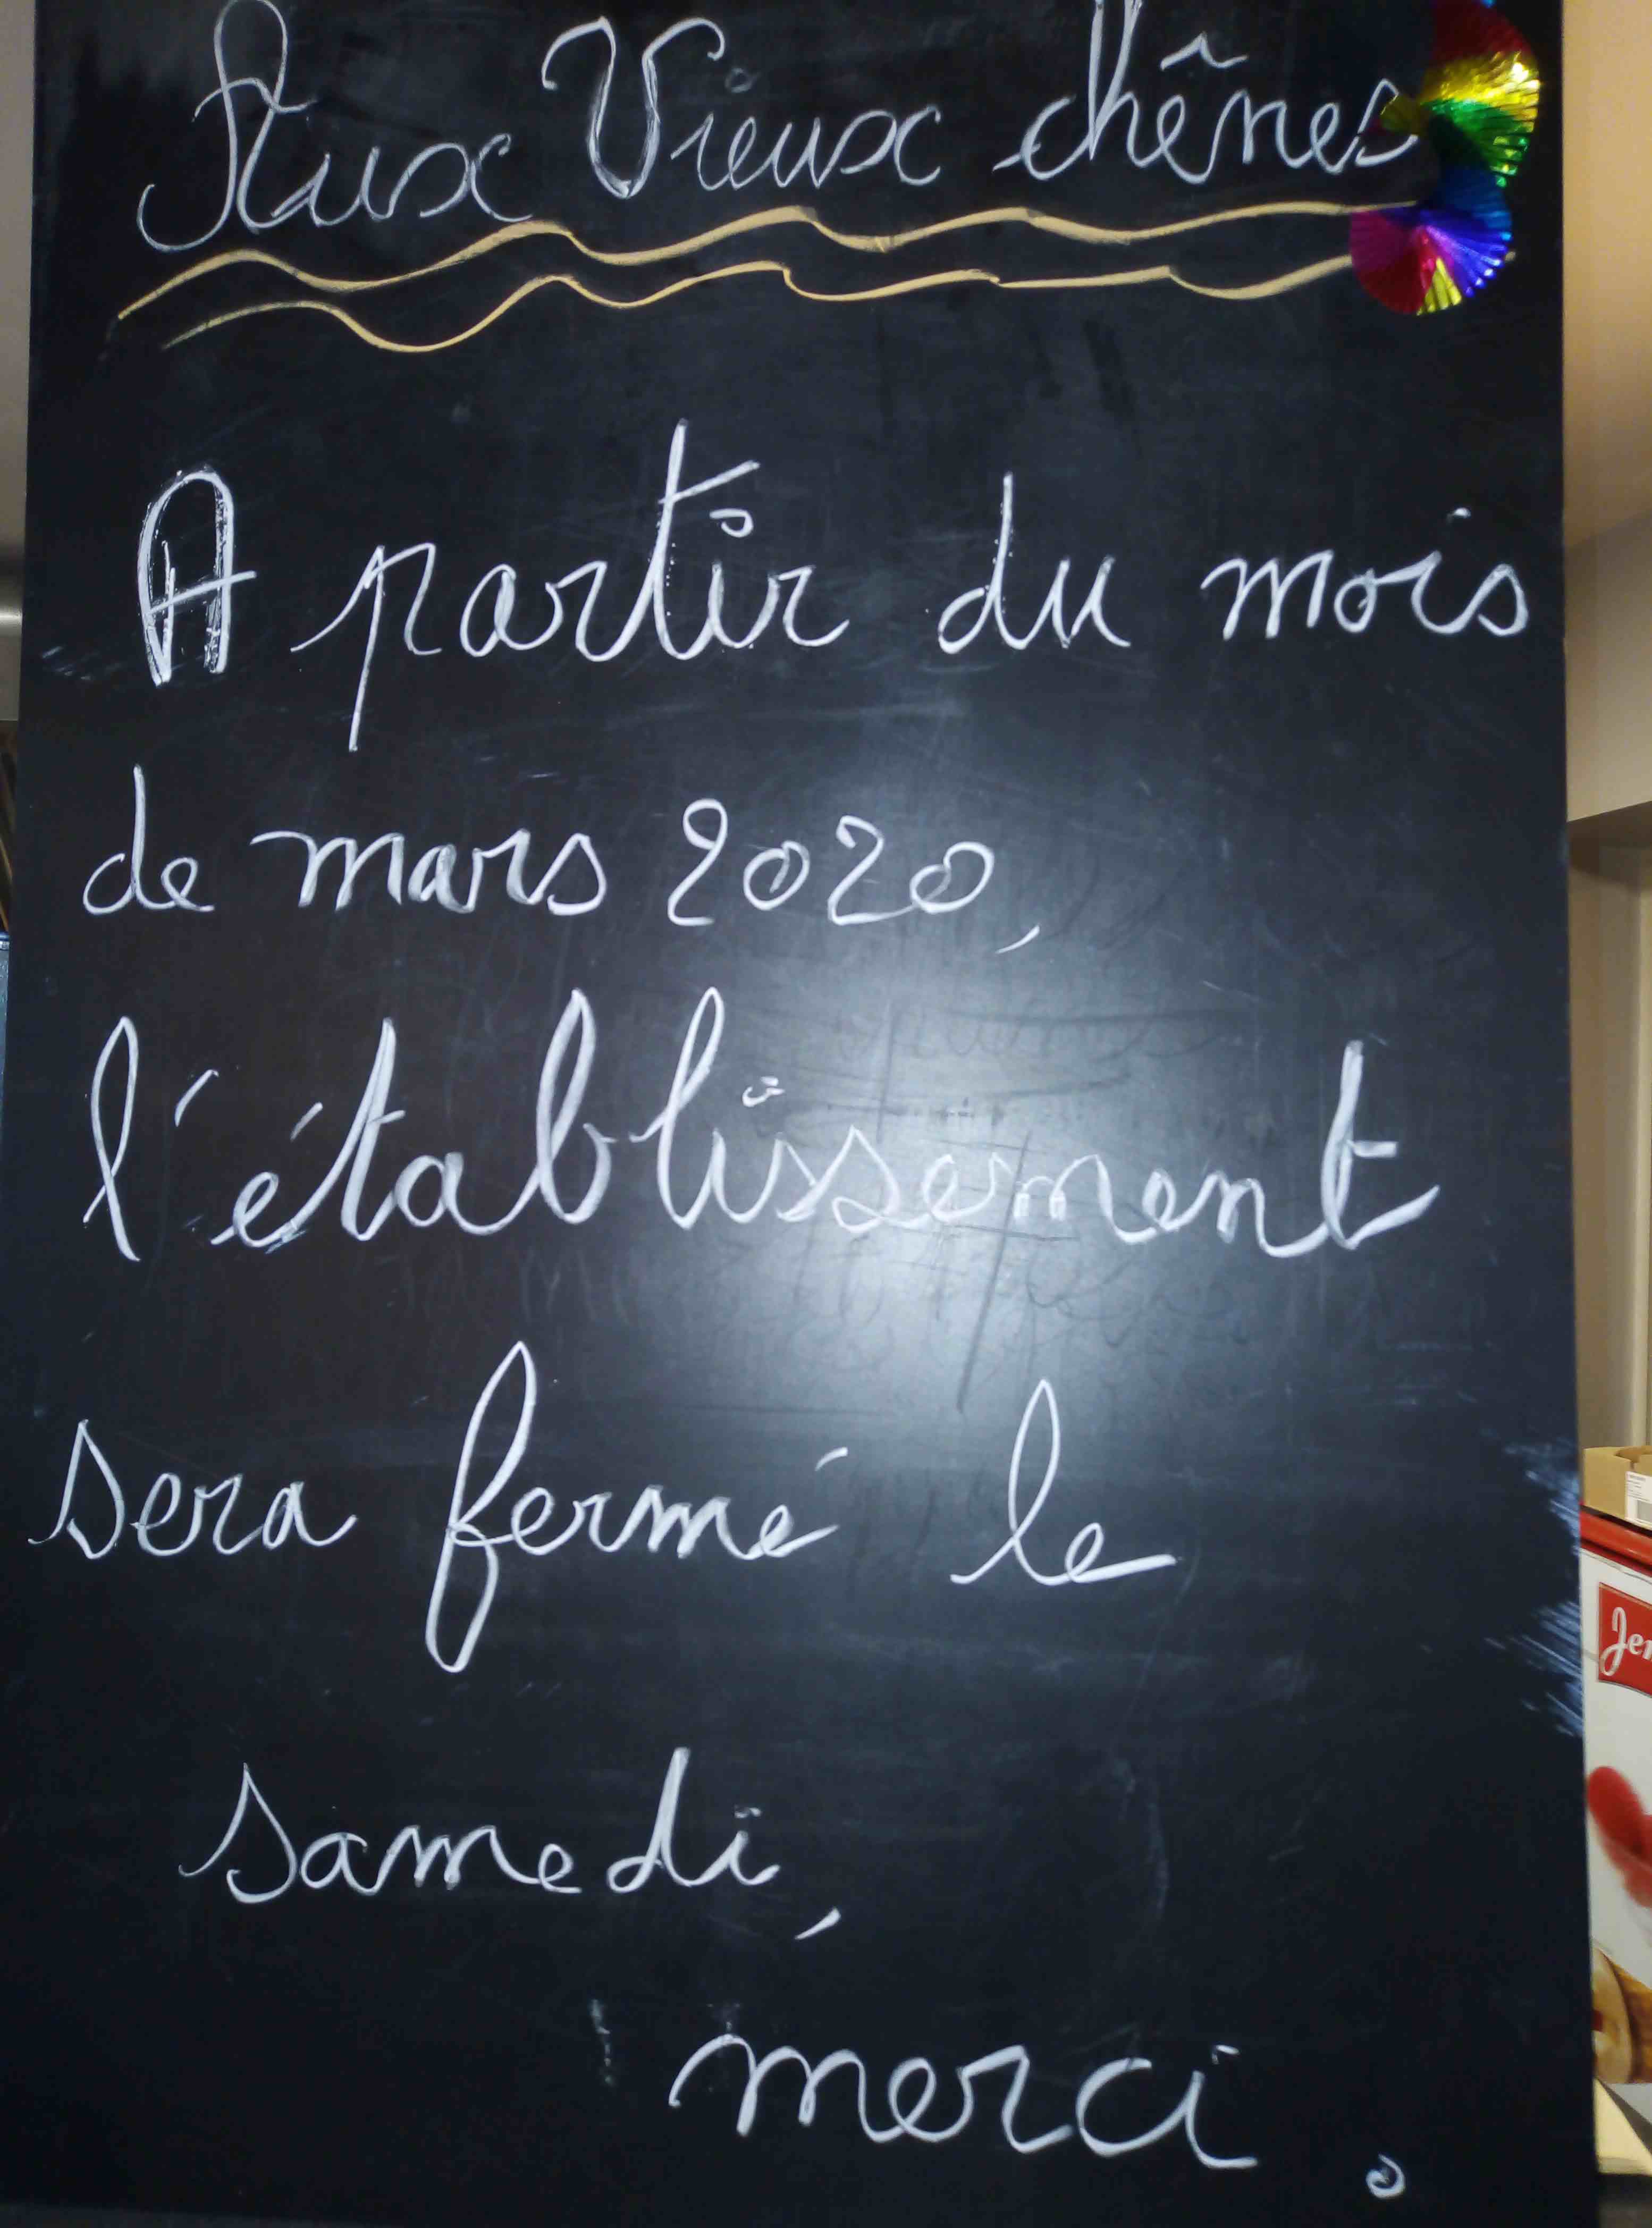 Aux Vieux chênes
A partir du mois
de mars 2020,
l'établissement
sera fermé le
samedi,
merci.